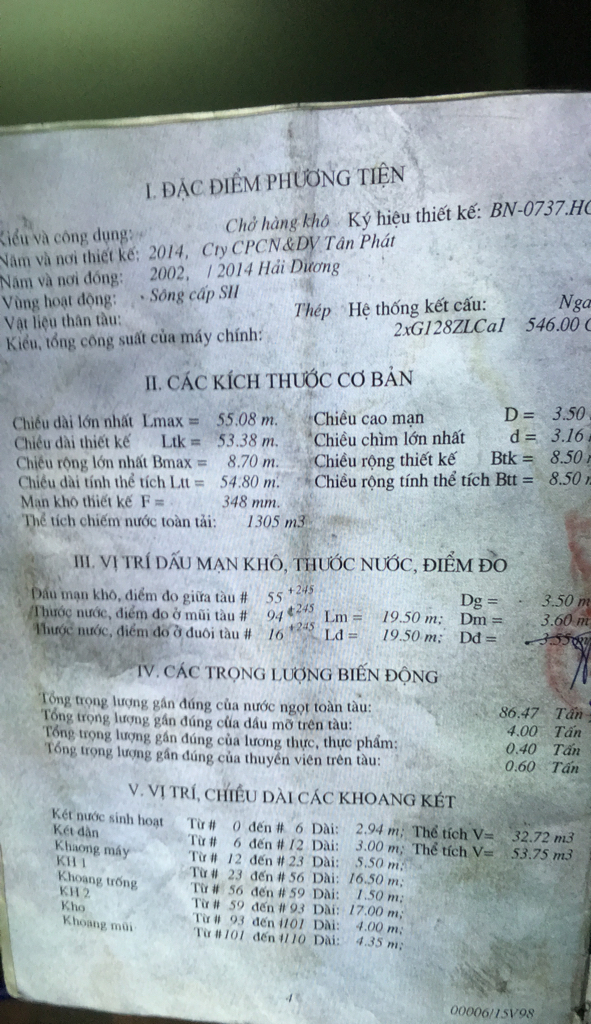 I. ĐẶC ĐIỂM PHƯƠNG TIỆN
Kiểu và công dụng: Chở hàng khô Ký hiệu thiết kế: BN-0737.HC
Năm và nơi thiết kế: 2014, Cty CPCN&DV Tân Phát
Năm và nơi đóng: 2002, / 2014 Hải Dương
Vùng hoạt động: - Sông cấp SII
Vật liệu thân tàu: Thép Hệ thống kết cấu: Nga
Kiểu, tổng công suất của máy chính: 2xG128ZLCa1 546.00
II. CÁC KÍCH THƯỚC CƠ BẢN
Chiều dài lớn nhất Lmax = 55.08 m. Chiều cao mạn D = 3.50
Chiều dài thiết kế Ltk = 53.38 m. Chiều chìm lớn nhất d = 3.16
Chiều rộng lớn nhất Bmax = 8.70 m. Chiều rộng thiết kế Btk = 8.50
Chiều dài tính thể tích Ltt = 54.80 m. Chiều rộng tính thể tích Btt = 8.50
Mạn khô thiết kế F = 348 mm.
Thể tích chiếm nước toàn tải: 1305 m3
III. VỊ TRÍ DẤU MẠN KHÔ, THƯỚC NƯỚC, ĐIỂM ĐO
Dấu mạn khô, điểm đo giữa tàu # 55 +245 Dg = 3.50 m
Thước nước, điểm đo ở mũi tàu # 94 +245 Lm = 19.50 m; Dm = 3.60 m
Thước nước, điểm đo ở đuôi tàu # 16 +245 Ld = 19.50 m; Dd = 3.55 m
IV. CÁC TRỌNG LƯỢNG BIẾN ĐỘNG
Tổng trọng lượng gần đúng của nước ngọt toàn tàu: 86.47 Tấn
Tổng trọng lượng gần đúng của dầu mỡ trên tàu: 4.00 Tấn
Tổng trọng lượng gần đúng của lương thực, thực phẩm: 0.40 Tấn
Tổng trọng lượng gần đúng của thuyền viên trên tàu: 0.60 Tấn
V. VỊ TRÍ, CHIỀU DÀI CÁC KHOANG KÉT
Két nước sinh hoạt Từ # 0 đến # 6 Dài: 2.94 m; Thể tích V= 32.72 m3
Két dằn Từ # 6 đến # 12 Dài: 3.00 m; Thể tích V= 53.75 m3
Khaong máy Từ # 12 đến # 23 Dài: 5.50 m;
KH 1 Từ # 23 đến # 56 Dài: 16.50 m;
Khoang trống Từ # 56 đến # 59 Dài: 1.50 m;
KH 2 Từ # 59 đến # 93 Dài: 17.00 m;
Kho Từ # 93 đến #101 Dài: 4.00 m;
Khoang mũi Từ #101 đến #110 Dài: 4.35 m;
4
00006/15V98